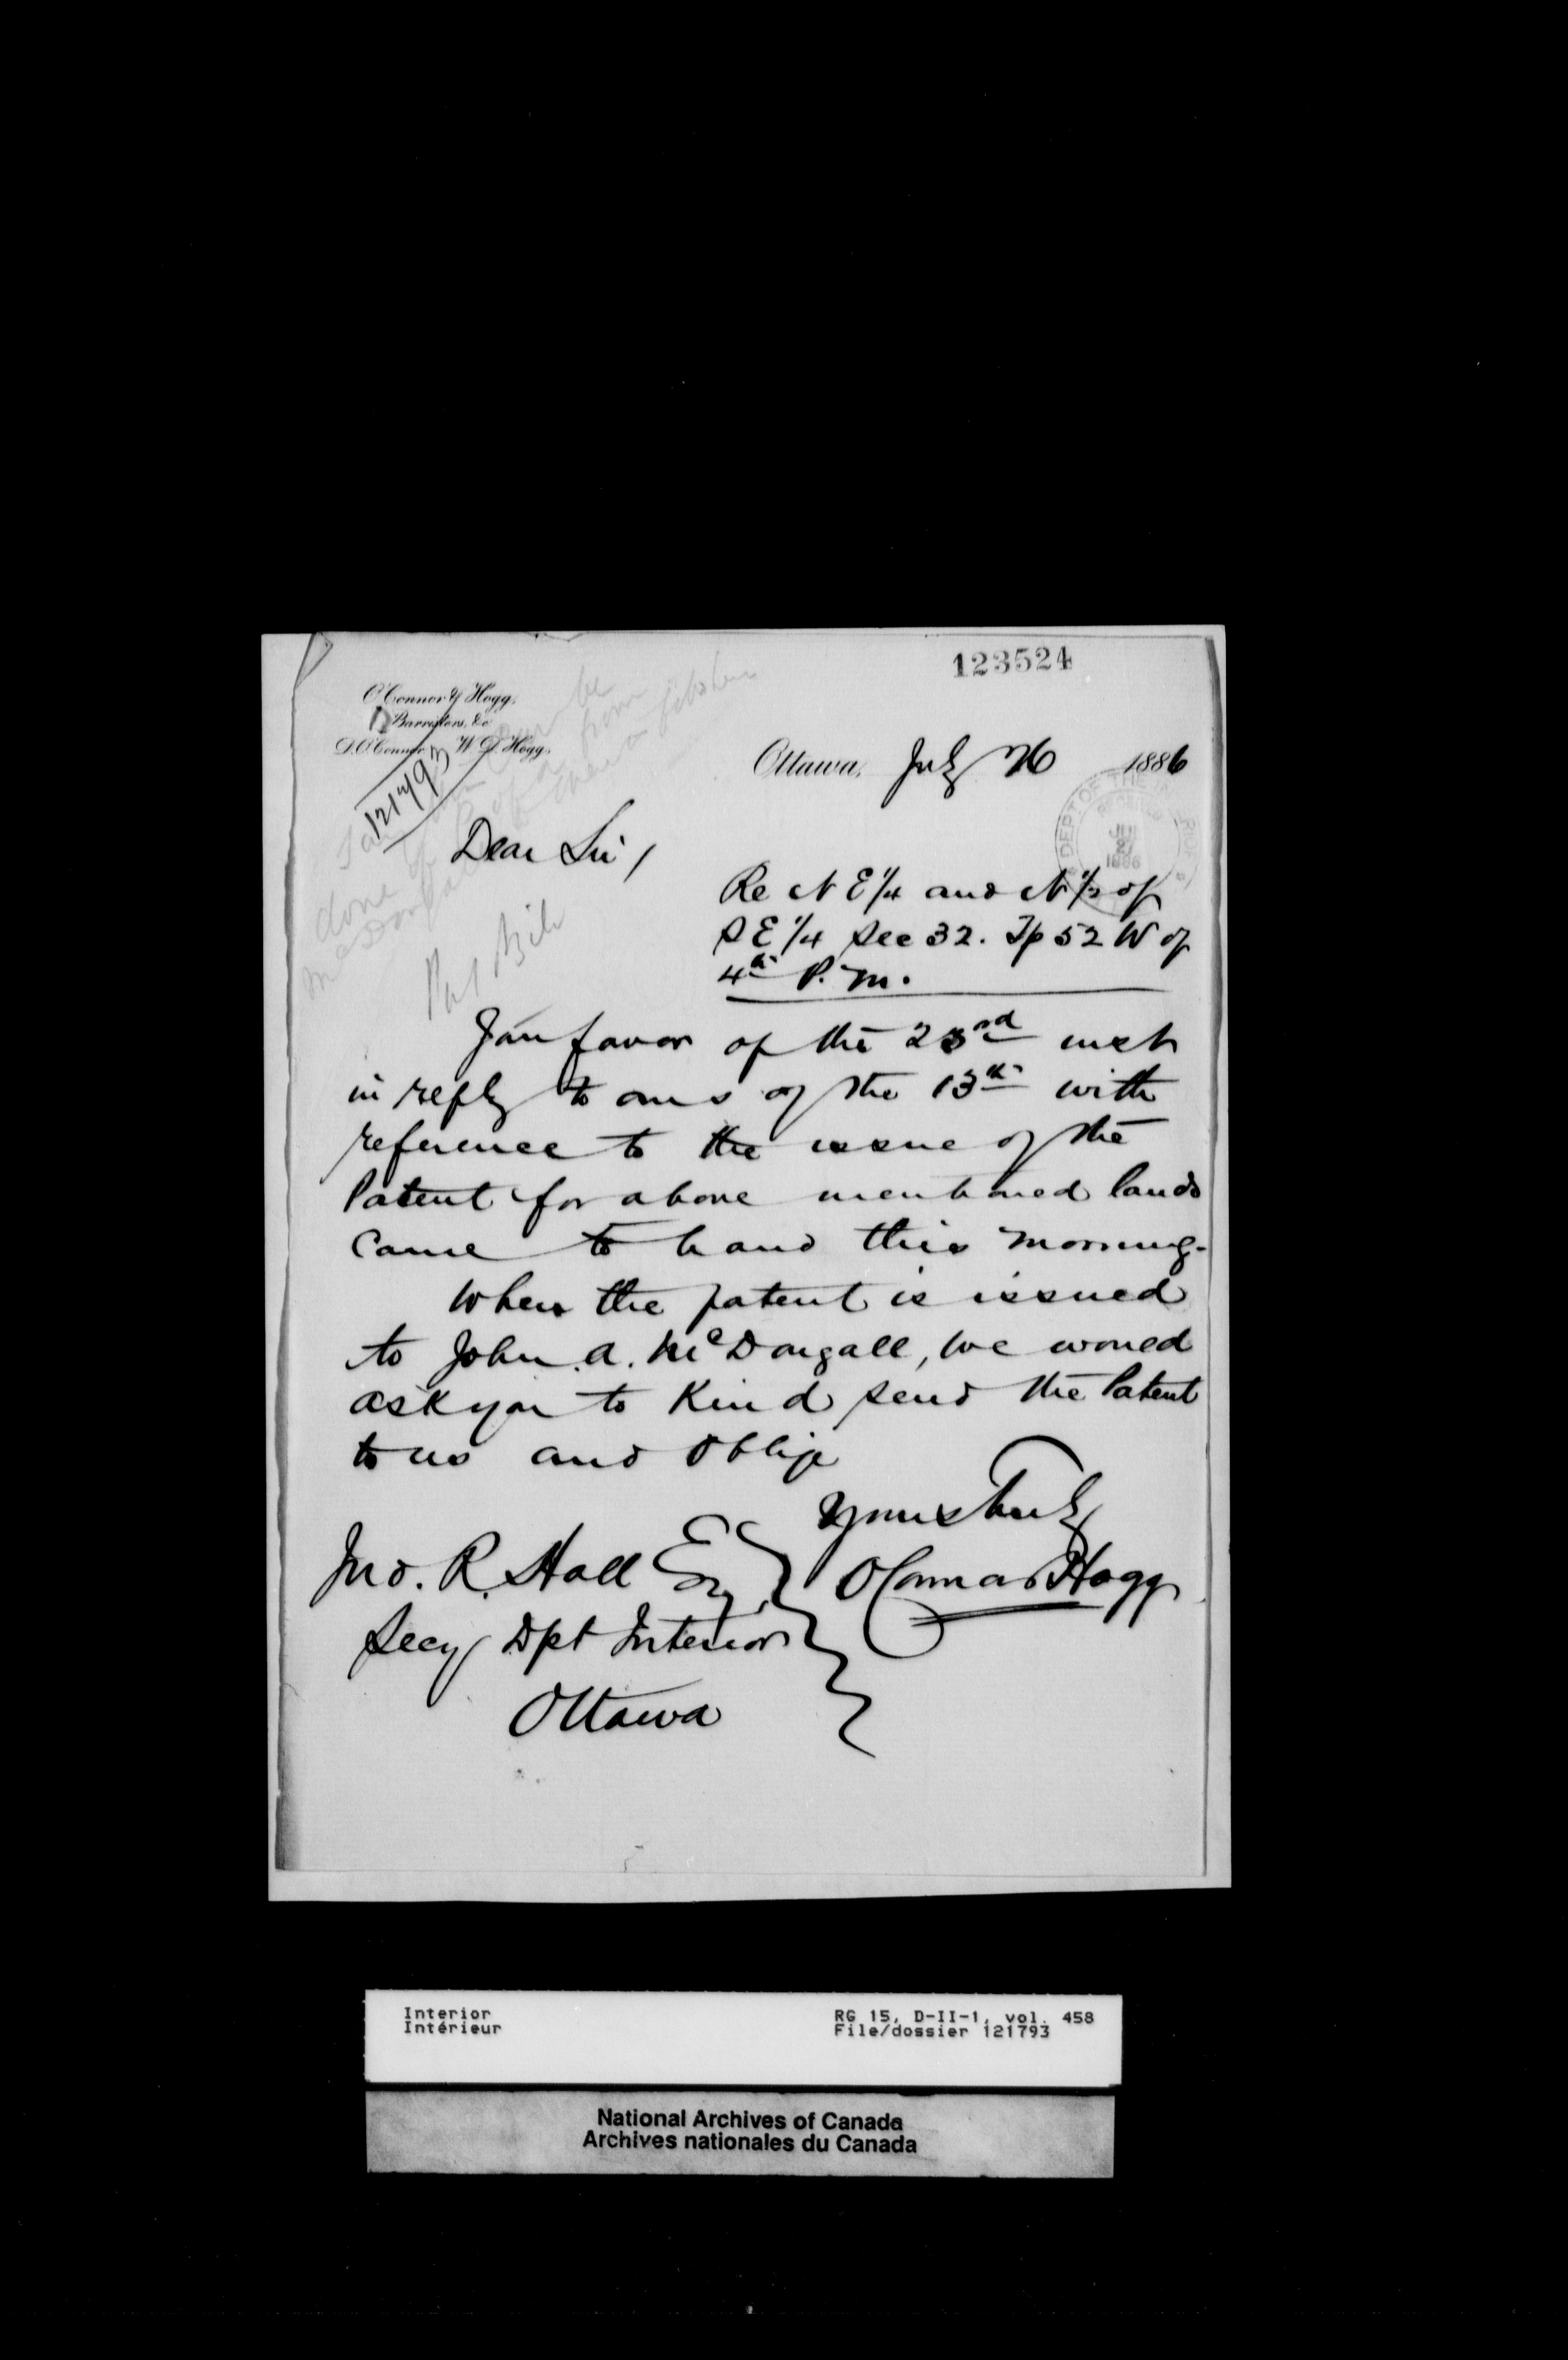 123524
O'Connor & Hogg,
Barristers, &c
D. O'Connor W. D. Hogg.
121793
Ottawa, July 26 1886
DEPT OF THE INTERIOR
RECEIVED
JUL
27
1886
Dear Sir,
Re N E 1/4 and N 1/2 of
S E 1/4 Sec 32. Tp 52 W of
4th P. M.
Your favor of the 23rd inst
in reply to ours of the 13th with
reference to the issue of the
Patent for above mentioned lands
Came to hand this morning.
When the patent is issued
to John A. McDougall, we would
ask you to Kind send the Patent
to us and Oblige
Yours truly
O'Connor & Hogg
Jno. R. Hall Esq,
Secy Dpt Interior
Ottawa
Interior
Intérieur
RG 15, D-II-1, vol. 458
File/dossier 121793
National Archives of Canada
Archives nationales du Canada